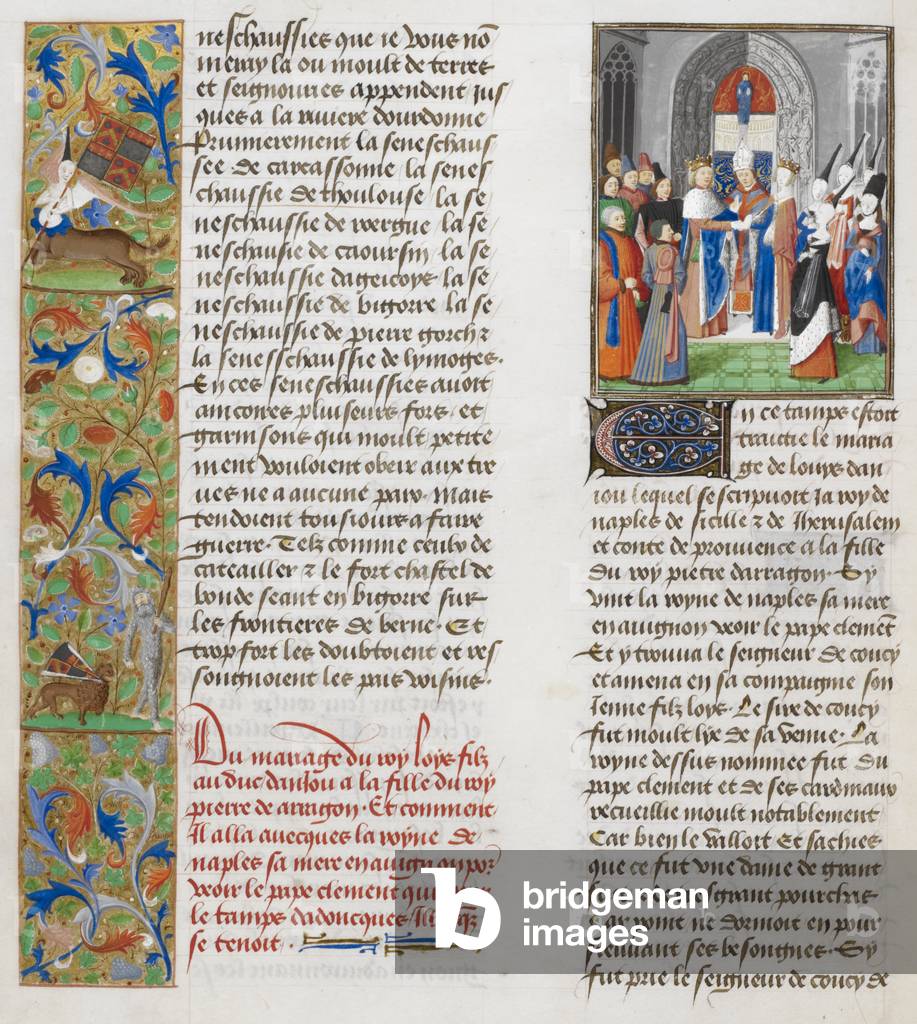 neschaussies que ie vous nō
meray la ou moult de terres
et seignouries appendent ius
ques a la riuiere dourdonne
Prumierement la seneschaus
see de carcassonne la senes
chaussie de thoulouse la se
neschaussie de rvergue la se
neschausie de caoursin la se
neschaussie dagenoys la se
neschaussie de bigorre la se
neschaussie de pierre gorch z
la seneschaussie de lymoges.
En ces seneschaussies auoit
ancoires pluiseurs fors et
garnisons qui moult petite
ment vouloient obeir aux tre
ues ne a aucune paix. Mais
tendoient tousiours a faire
guerre. Telz comme ceulx de
cateailler z le fort chastel de
boude seant en bigorre sur
les frontieres de berne. Et
trop fort les doubtoient et res
songnoient les pais voisins.
Du mariage du roy loys filz
au duc daniou a la fille du roy
pierre de arragon. Et comment
Il alla auecques la royne de
naples sa mere en auignon por
veoir le pape clement qui
le temps dadoncques
se tenoit.
En ce tamps estoit
traictie le maria
ge de loys dan
iou lequel se scripuoit Ja roy de
naples de sicille z de Iherusalem
et conte de prouuence a la fille
du roy pietre darragon. Sy
vint la royne de naples sa mere
en auignon veoir le pape clemēt
Et y trouua le seigneur de coucy
et amena en sa compaignie son
Jenne filz loys. Le sire de coucy
fut moult lye de sa venue. La
royne dessus nommee fut du
pape clement et de ses cardinaux
recueillie moult notablement
Car bien le vallort Et sachies
que ce fut vne dame de grant
grant pourchas
Car point ne dormoit en pour
seuuant ses besongnes. Sy
fut prie le seigneur de coucy de
b bridgeman
images